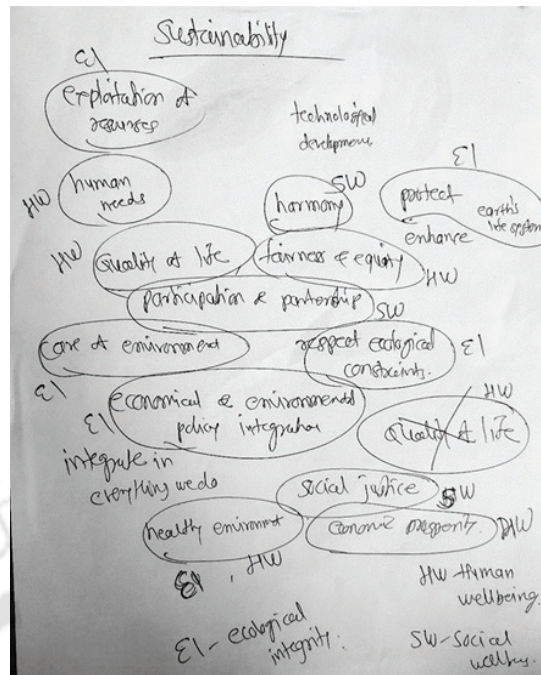 Sustainability
EI
exploitation of
resources
technological
development
HW
human
needs
SW
harmony
EI
protect
earth's
life system
enhance
HW
Quality of life
fairness & equity
HW
participation & partnership
SW
care of environment
EI
respect ecological
constraints.
EI
EI
economical & environmental
policy integration
HW
Quality of life
integrate in
everything we do
social justice
SW
healthy environment
economic prosperity.
HW
EI, HW
HW - Human
wellbeing.
EI - ecological
integrity.
SW - Social
wellbeing.